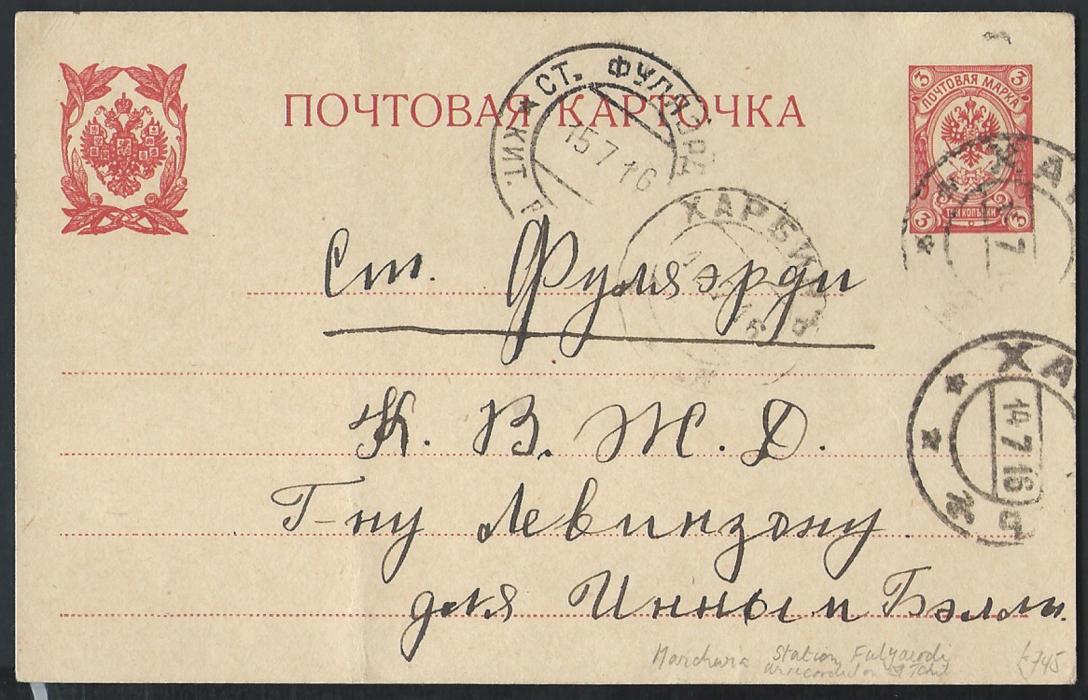 ПОЧТОВАЯ КАРТОЧКА
3 ПОЧТОВАЯ МАРКА 3
3 ТРИ КОПѢЙКИ 3
СТ. ФУЛЯЭРД
КИТ.
15 7 16
ХАРБИНЪ
ХА
7
ХА
14 7 16
Ст. Фуляэрди
К. В. Ж. Д.
Г-ну Левинзону
для Инны и Бэллы.
Manchuria Station Fulyaerdi
unrecorded on
£745